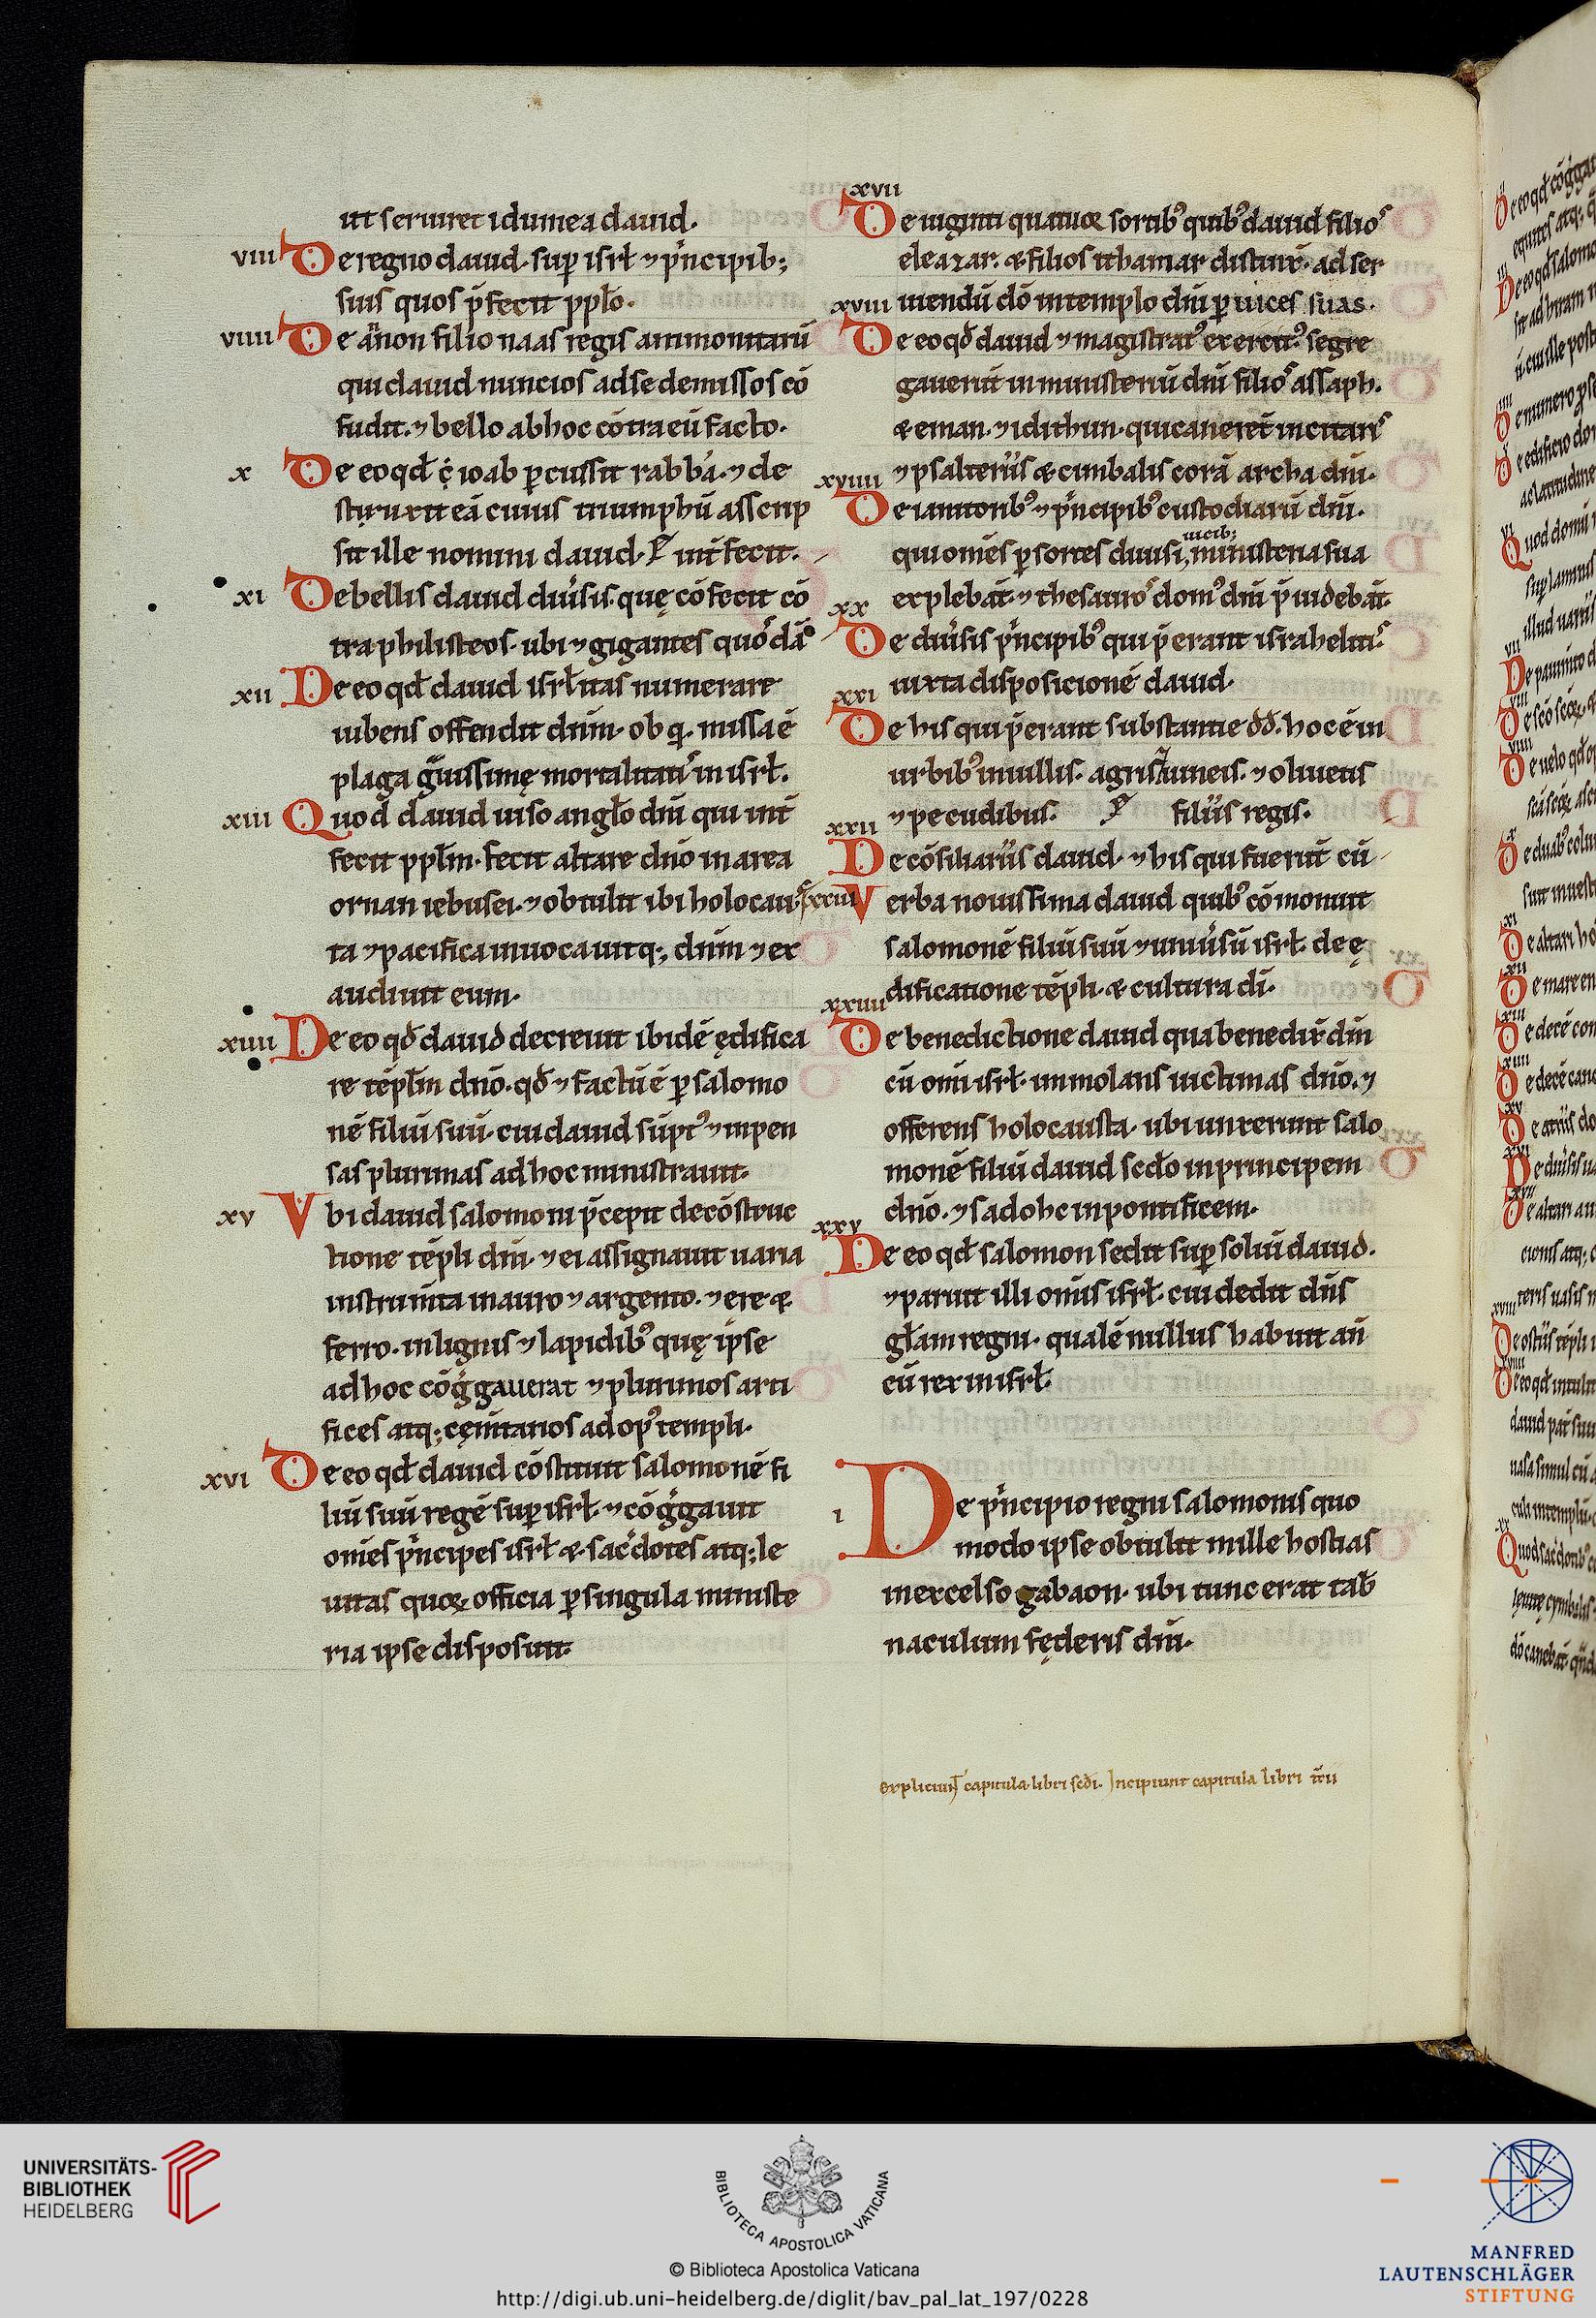 ut seruiret idumea dauid.
viii De regno dauid. sup isrł ⁊ pͥncipib;
suis quos p̄fecit ppło.
viiii De ānon filio naas regis ammonitarū
qui dauid nuncios ad se demissos cō
fudit. ⁊ bello ab hoc cōtra eū facto.
x De eo qđ ioab ꝑcussit rabba. ⁊ de
struxit eā cuius triumphū asscrip
sit ille nomini dauid.
xi De bellis dauid diu̓sis. quę cōfecit cō
tra philisteos. ubi ⁊ gigantes quosdā
xii De eo qđ dauid isrłitas numerare
iubens offendit dn̄m. ob q. missa ē
plaga gͣuissimę mortalitatis in isrł.
xiii Quod dauid uiso angło dn̄i qui int̄
fecit ppłm. fecit altare dn̄o in area
ornan iebusei. ⁊ obtulit ibi holocaus
ta ⁊ pacifica inuocauitq; dn̄m ⁊ ex
audiuit eum.
xiiii De eo qđ dauid decreuit ibidē ędifica
re tēpłm dn̄o. qđ ⁊ factū ē ꝑ salomo
nē filiū suū. cui dauid sūptꝰ ⁊ inpen
sas plurimas ad hoc ministrauit.
xv Vbi dauid salomoni p̄cepit de cōstruc
tione tēpli dn̄i. ⁊ ei assignauit uaria
instrum̄ta in auro ⁊ argento. ⁊ ere &
ferro. in lignis ⁊ lapidibꝰ quę ipse
ad hoc cōgͤgauerat ⁊ plurimos arti
fices atq; cęm̄tarios ad opꝰ templi.
xvi De eo qđ dauid cōstituit salomonē fi
liū suū regē sup isrł. ⁊ cōgͤgauit
om̄es pͥncipes isrł &. sac̓dotes atq; le
uitas quoꝝ officia ꝑ singula ministe
ria ipse disposuit.
xvii De uiginti quatuor sortibꝰ quibꝰ dauid filios
eleazar. & filios ithamar distinx̄. ad ser
xviii uiendū dō in templo dn̄i ꝑ uices suas.
De eo qđ dauid ⁊ magistratꝰ exercitꝰ segre
gauerūt in ministeriū dn̄i filios assaph.
& eman. ⁊ idithun. qui canerēt in citaris
xviiii ⁊ psalteriis & cimbalis corā archa dn̄i.
De ianitoribꝰ ⁊ pͥncipibꝰ custodiarū dn̄i.
uicib;
qui om̄es ꝑ sortes diuisi, ministeria sua
xx explebāt. ⁊ thesauros domꝰ dn̄i p̄uidebāt.
De diu̓sis pͥncipibꝰ qui p̄erant israhelitis
xxi iuxta disposicionē dauid.
De his qui p̄erant substantie đđ. hoc ē in
urbibꝰ in uillis. agris uineis. ⁊ oliuetis
xxii ⁊ pecudibus. filiis regis.
De cōsiliariis dauid. ⁊ his qui fuerūt cū
xxiii Verba nouissima dauid quibꝰ cōmonuit
salomonē filiū suū ⁊ uniu̓sū isrł. de ę
xxiiii dificatione tēpli. & cultura dī.
De benedictione dauid qua benedix̄ dn̄m
cū om̄i isrł. immolans uictimas dn̄o. ⁊
offerens holocausta. ubi unxerunt salo
monē filiū dauid sc̄do in principem
xxv dn̄o. ⁊ sadohc in pontificem.
De eo qđ salomon sedit sup soliū dauid.
⁊ paruit illi om̄is isrł. cui dedit dn̄s
głam regni. qualē nullus habuit an̄
cū rex in isrł.
i De pͥncipio regni salomonis quo
modo ipse obtulit mille hostias
in excelso gabaon. ubi tunc erat tab̄
naculum fęderis dn̄i.
expliciunt capitula libri sc̄di. Incipiunt capitula libri t̄cii
UNIVERSITÄTS-
BIBLIOTHEK
HEIDELBERG
BIBLIOTECA APOSTOLICA VATICANA
© Biblioteca Apostolica Vaticana
http://digi.ub.uni-heidelberg.de/diglit/bav_pal_lat_197/0228
MANFRED
LAUTENSCHLÄGER
STIFTUNG